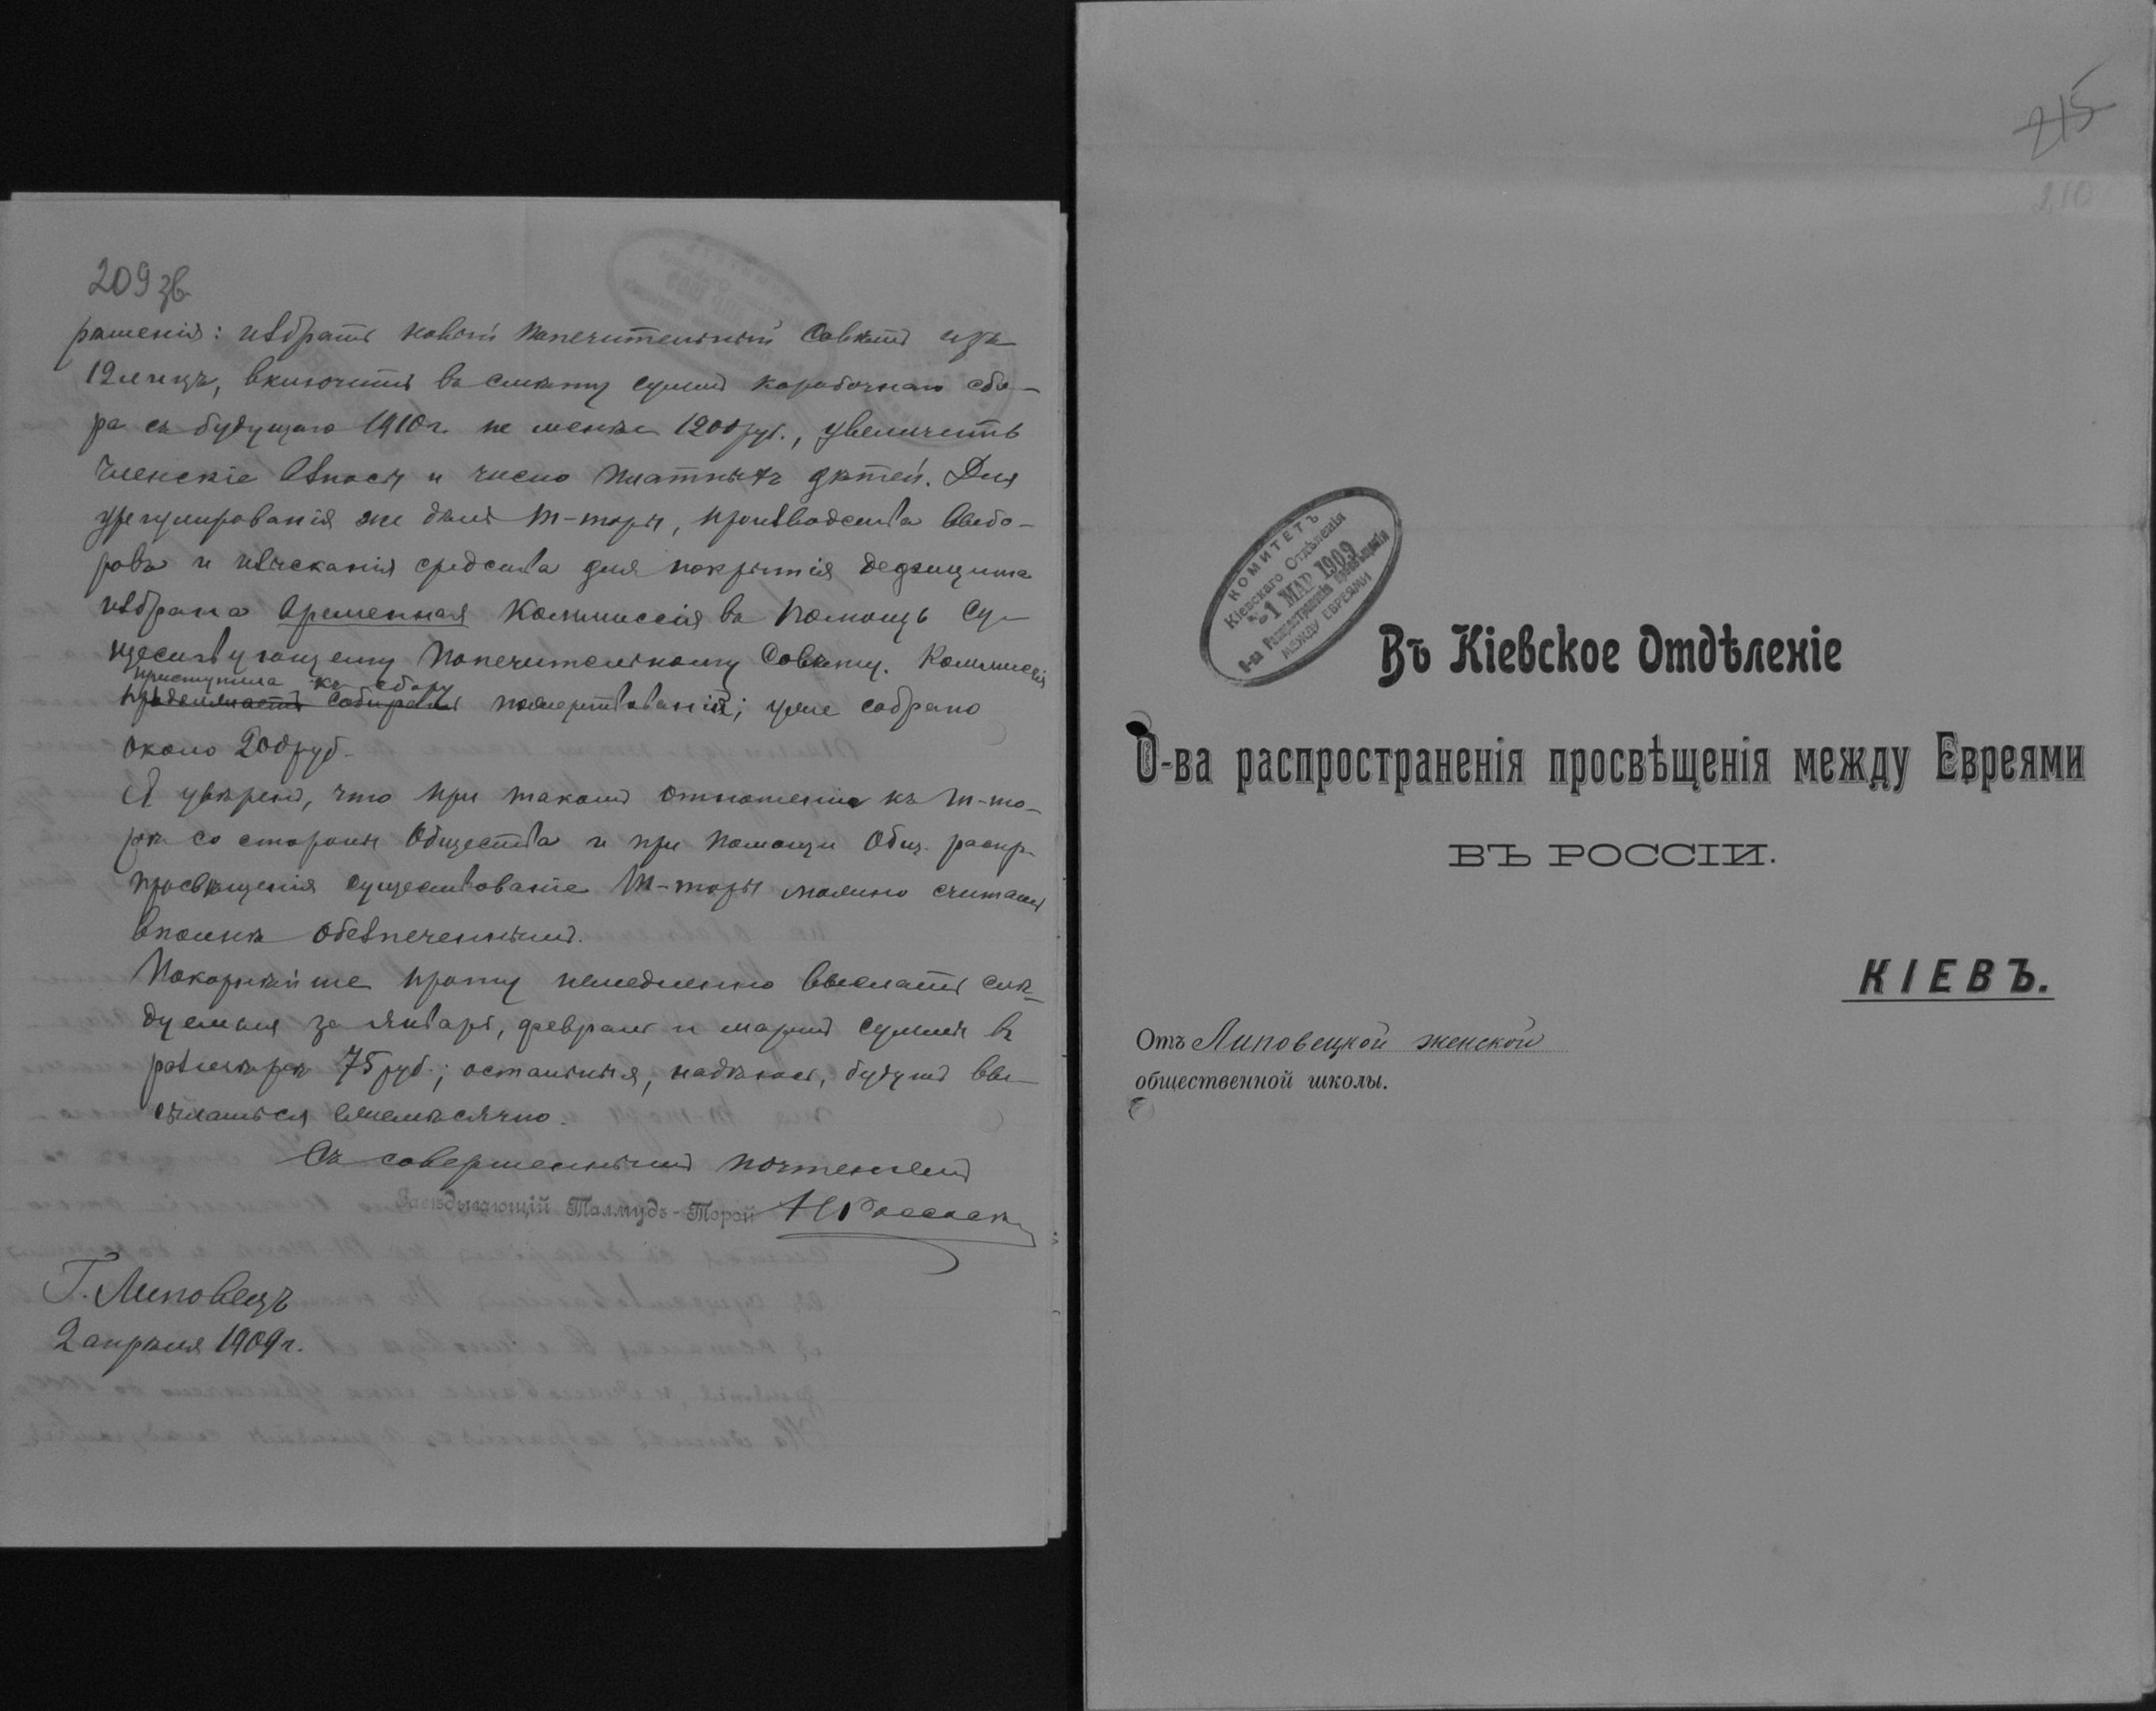 209 зв.
рѣшенія: избрать новый попечительный Совѣтъ изъ
12 лицъ, включить въ смѣту суммъ коробочнаго сбо-
ра съ будущаго 1910 г. не менѣе 1200 руб., увеличить
членскіе взносы и число платныхъ дѣтей. Для
урегулированія же дѣлъ Т-торы, производства выбо-
ровъ и изысканія средствъ для покрытія дефицита
избрана временная Коммиссія въ помощь су-
ществующему попечительному Совѣту. Коммиссія
приступила къ сбору
продолжаетъ собирать пожертвованій; уже собрано
около 200 руб.
Я увѣренъ, что при такомъ отношеніи къ Т-то-
рѣ со стороны Общества и при помощи Общ. распр.
просвѣщенія существованіе Т-торы можно считать
вполнѣ обезпеченнымъ.
Покорнѣйше прошу немедленно выслать слѣ-
дуемыя за январь, февраль и мартъ суммы въ
размѣрѣ 75 руб.; остальныя, надѣюсь, будутъ вы-
сылаться ежемѣсячно.
Съ совершеннымъ почтеніемъ
Завѣдывающій Талмудъ-Торой
Г. Липовецъ
2 апрѣля 1909 г.
215
210
КОМИТЕТЪ
Кіевскаго Отдѣленія
1 МАР 1909
О-ва Распространенія Просвѣщенія
МЕЖДУ ЕВРЕЯМИ
Въ Кіевское Отдѣленіе
О-ва распространенія просвѣщенія между Евреями
ВЪ РОССІИ.
КІЕВЪ.
Отъ Липовецкой женской
общественной школы.